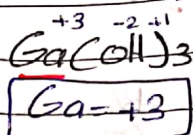 +3 -2 +1
Ga(OH)3
Ga=+3